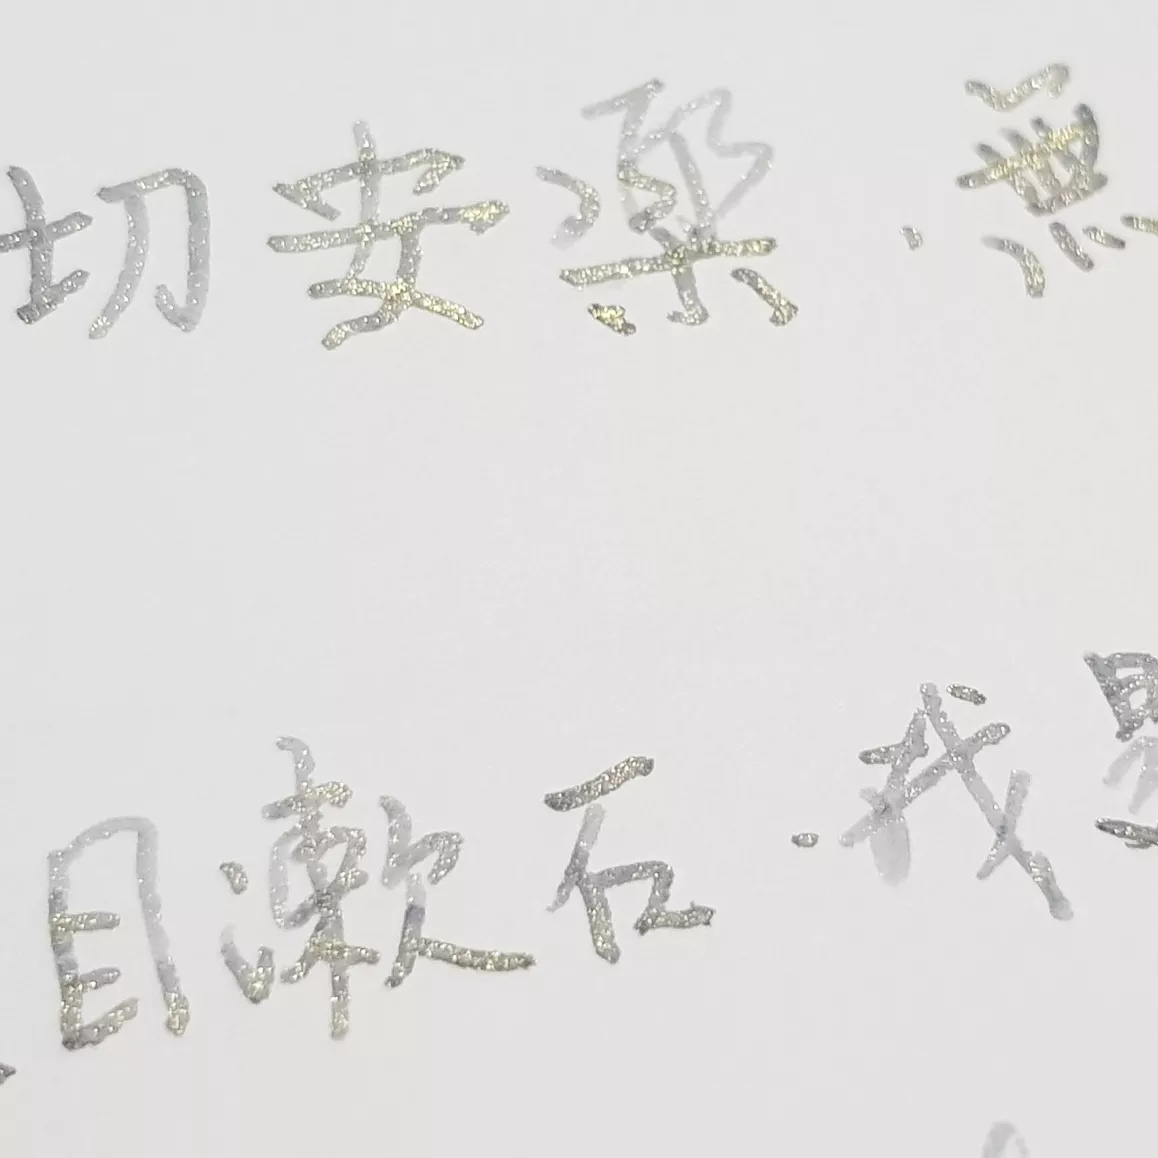 切安樂．無
目漱石．我